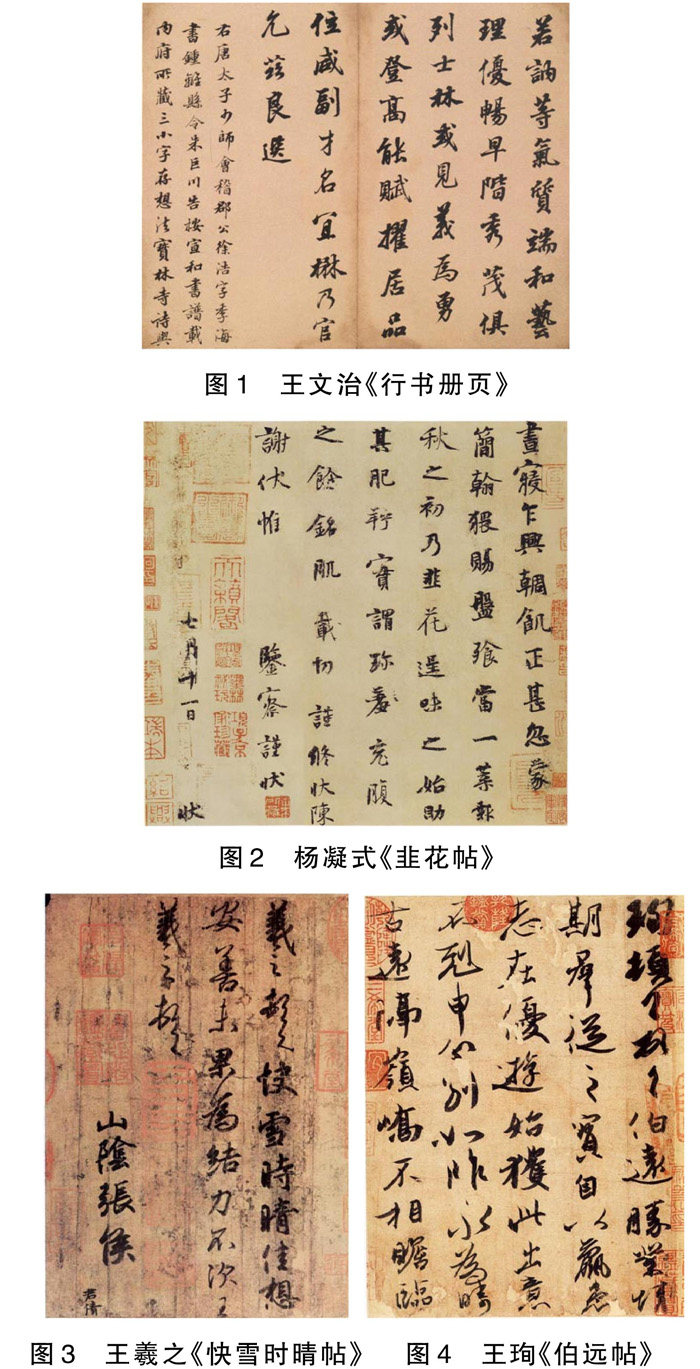 若訥等氣質端和藝
理優暢早階秀茂俱
列士林或見義為勇
或登高能賦擢居品
位咸副才名宜楙乃官
允茲良選
右唐太子少師會稽郡公徐浩字季海
書鍾離縣令朱巨川告按宣和書譜載
內府所藏三小字存想法寶林寺詩與
图1 王文治《行书册页》
晝寢乍興輖飢正甚忽蒙
簡翰猥賜盤飧當一葉報
秋之初乃韭花逞味之始助
其肥羜實謂珍羞充腹
之餘銘肌載切謹修狀陳
謝伏惟 鑒察謹狀
七月十一日 狀
图2 杨凝式《韭花帖》
羲之頓首快雪時晴佳想
安善未果為結力不次王
羲之頓首
山陰張侯
君倩
图3 王羲之《快雪时晴帖》
珣頓首頓首伯遠勝業情
期群從之寶自以羸患
志在優遊始獲此出意
不剋申分別如昨永為疇
古遠隔嶺嶠不相瞻臨
图4 王珣《伯远帖》